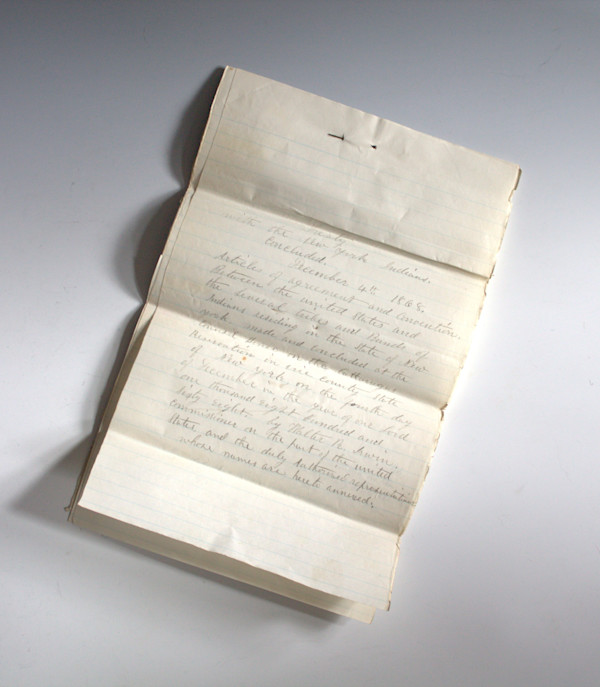 Treaty
with the New York Indians.
Concluded.
December 4th 1868.
Articles of agreement and Convention.
Between the united States and
the several tribes and Bands of
Indians residing in the State of New
York made and concluded at the
Reservation in erie County State
of New York on the fourth day
of December in the year of our Lord
one thousand eight hundred and
sixty eight by Walter R. Irwin.
commissioner on the part of the united
States and the duly Authorized representatives
whose names are hereto annexed.